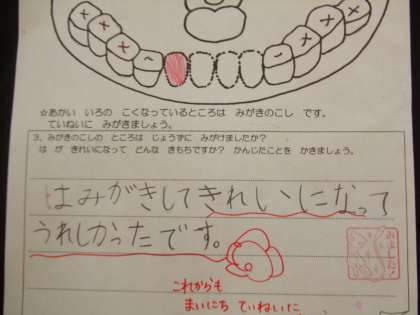 ☆あかい いろの こくなっているところは みがきのこし です。
ていねいに みがきましょう。
3. みがきのこしの ところは じょうずに みがけましたか?
は が きれいになって どんな きもちですか? かんじたことを かきましょう。
はみがきしてきれいになって
うれしかったです。
これからも
まいにち ていねいに